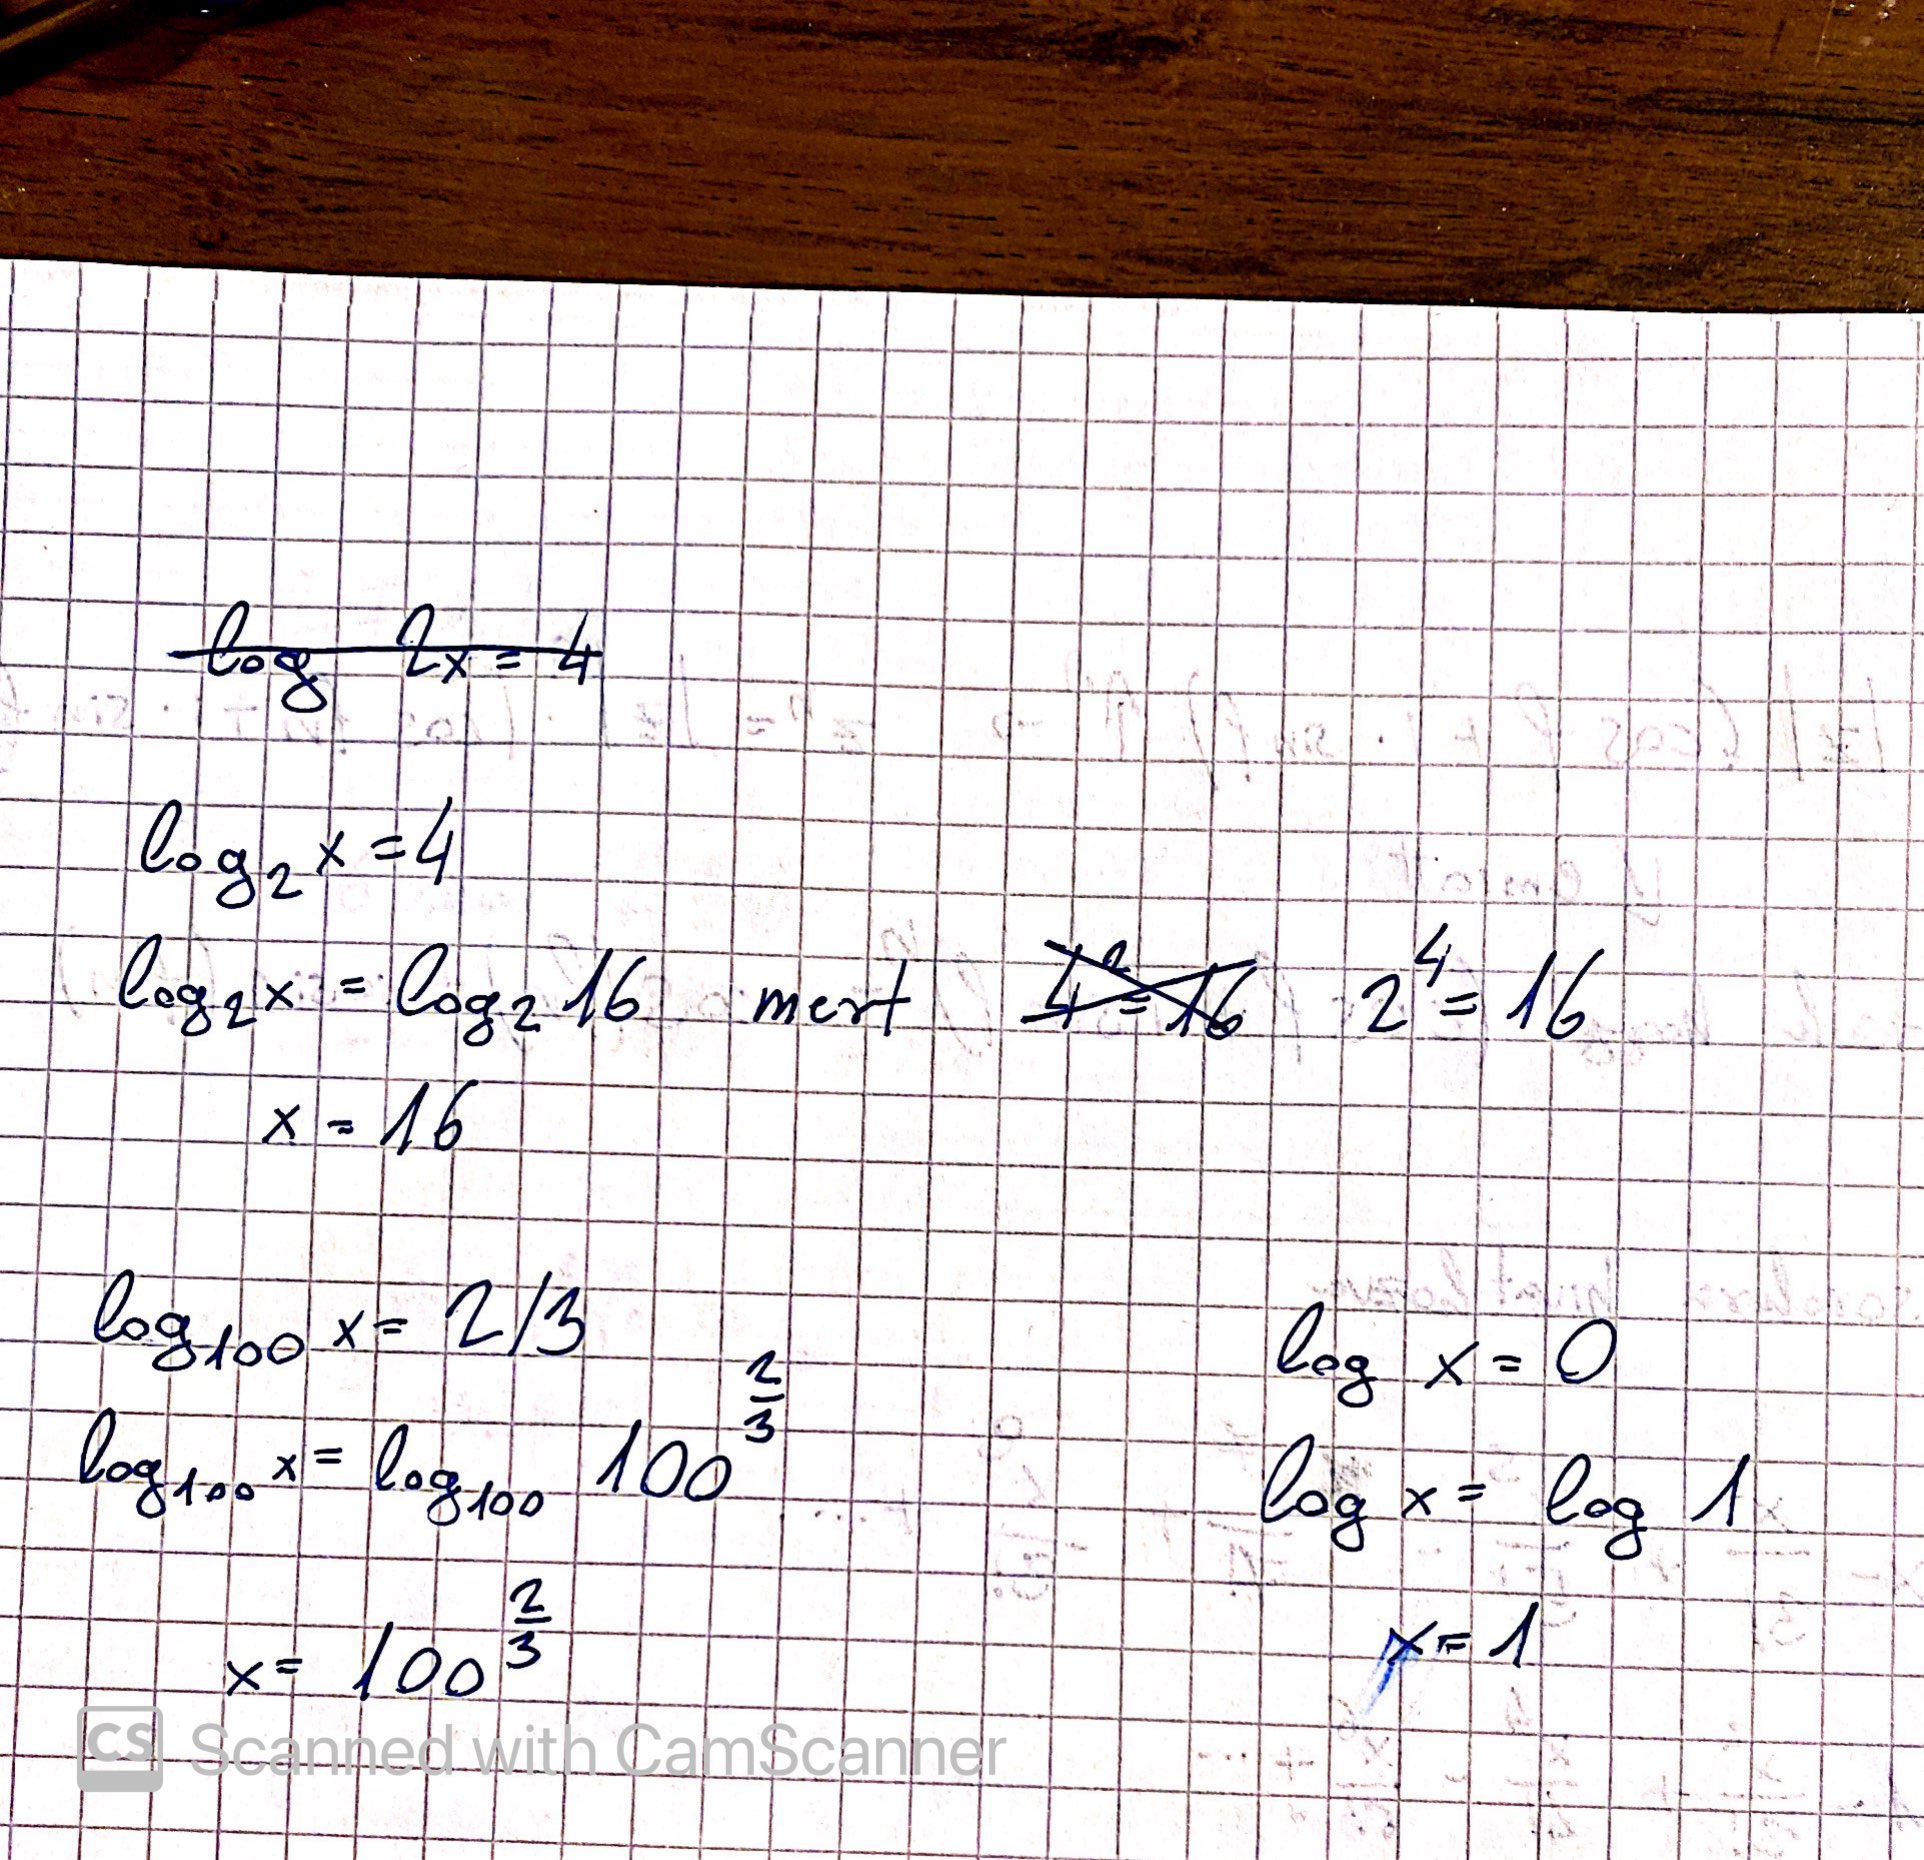 log 2x = 4
log₂ x = 4
log₂ x = log₂ 16 mert 4² = 16 2⁴ = 16
x = 16
log₁₀₀ x = 2/3
log₁₀₀ x = log₁₀₀ 100^(2/3)
x = 100^(2/3)
log x = 0
log x = log 1
x = 1
CS Scanned with CamScanner